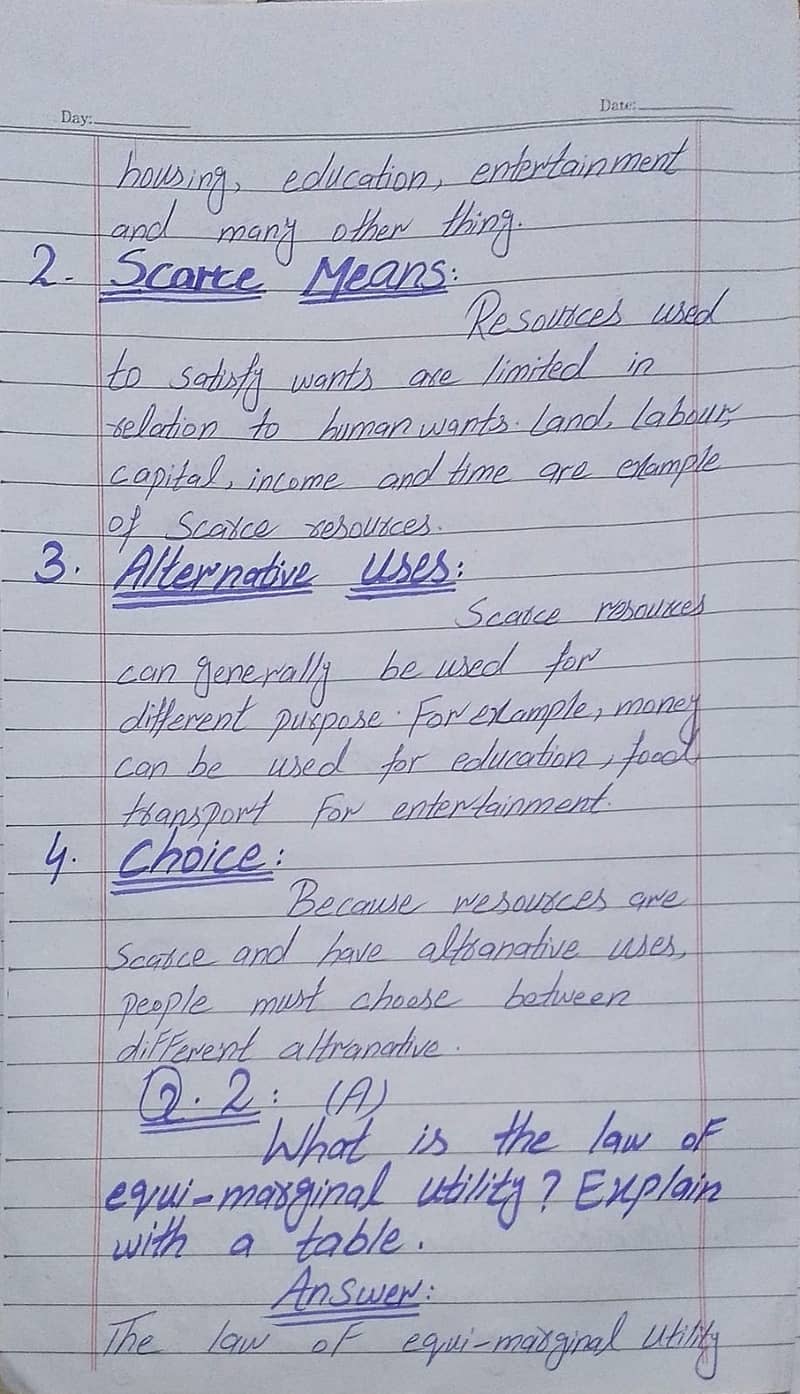 Day:
Date:
housing, education, entertainment
and many other thing.
2. Scarce Means:
Resources used
to satisfy wants are limited in
relation to human wants. Land, labour,
capital, income and time are example
of Scarce resources.
3. Alternative Uses:
Scarce resources
can generally be used for
different purpose. For example, money
can be used for education, food
transport For entertainment.
4. Choice:
Because resources are
Scarce and have altranative uses,
people must choose between
different altranative.
Q. 2: (A)
What is the law of
equi-marginal utility? Explain
with a table.
Answer:
The law of equi-marginal utility